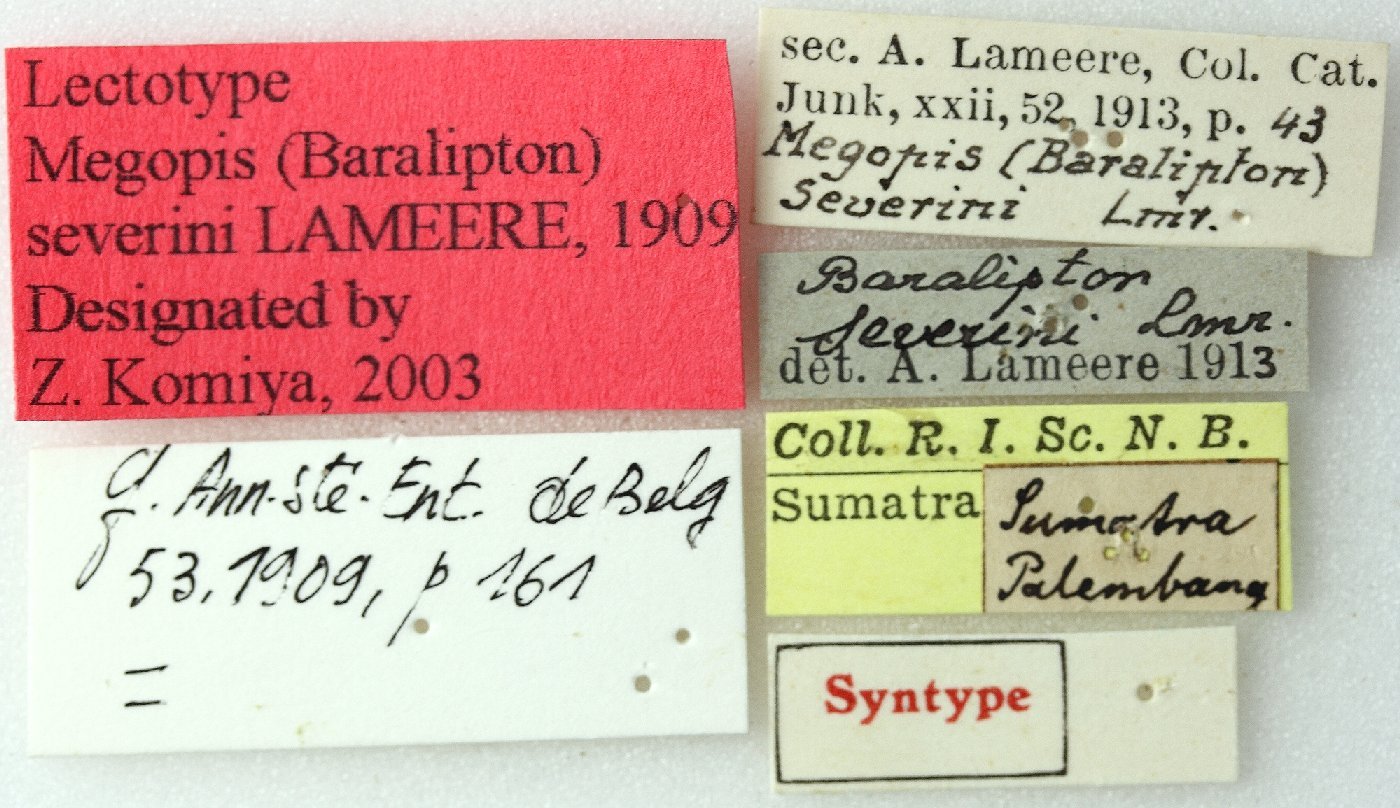 Lectotype
Megopis (Baralipton)
severini LAMEERE, 1909
Designated by
Z. Komiya, 2003
Ann. Ste. Ent. de Belg
53, 1909, p 161
=
sec. A. Lameere, Col. Cat.
Junk, xxii, 52, 1913, p. 43
Megopis (Baralipton)
Severini Lmr.
Baralipton
severini Lmr.
det. A. Lameere 1913
Coll. R. I. Sc. N. B.
Sumatra
Sumatra
Palembang
Syntype